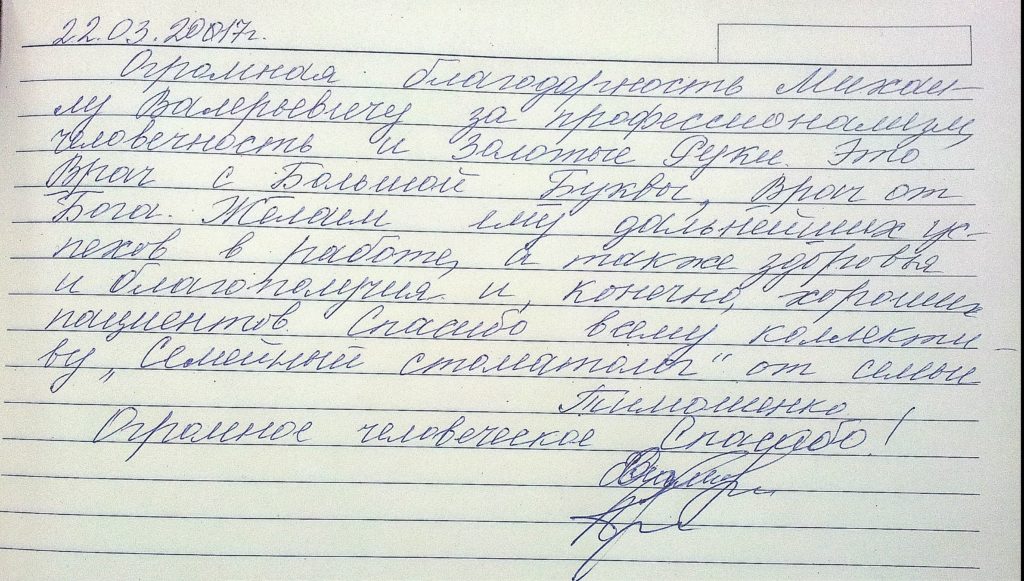 22.03.2017г.
Огромная благодарность Михаи-
лу Валерьевичу за профессионализм,
человечность и Золотые Руки. Это
Врач с Большой Буквы, Врач от
Бога. Желаем ему дальнейших ус-
пехов в работе, а также здоровья
и благополучия и, конечно, хороших
пациентов. Спасибо всему коллекти-
ву „Семейный стоматолог" от семьи
Тимошенко
Огромное человеческое Спасибо!